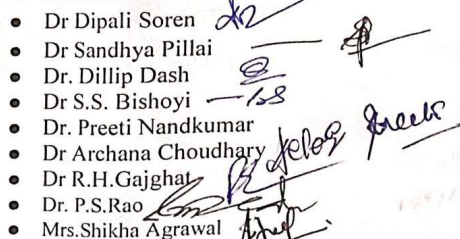 • Dr Dipali Soren
• Dr Sandhya Pillai
• Dr. Dillip Dash
• Dr S.S. Bishoyi
• Dr. Preeti Nandkumar
• Dr Archana Choudhary
• Dr R.H.Gajghat
• Dr. P.S.Rao
• Mrs.Shikha Agrawal